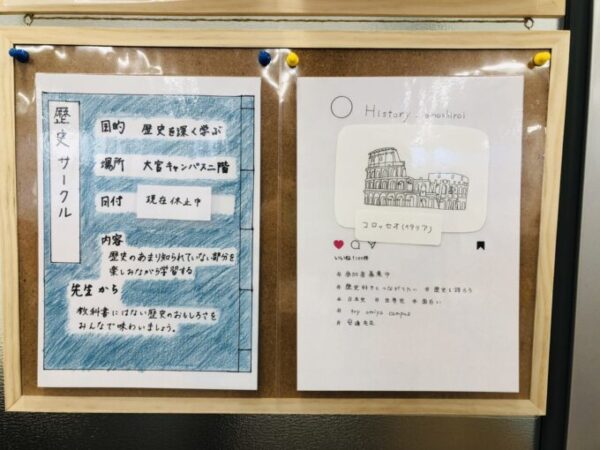 歴史サークル
目的 歴史を深く学ぶ
場所 大宮キャンパス二階
日付 現在休止中
内容
歴史のあまり知られていない部分を
楽しみながら学習する
先生から
教科書にはない歴史のおもしろさを
みんなで味わいましょう。
History_omoshiroi
コロッセオ(イタリア)
いいね
# 参加者募集中
# 歴史好きとつながりたい # 歴史を語ろう
# 日本史 # 世界史 # 面白い
# omiya campus